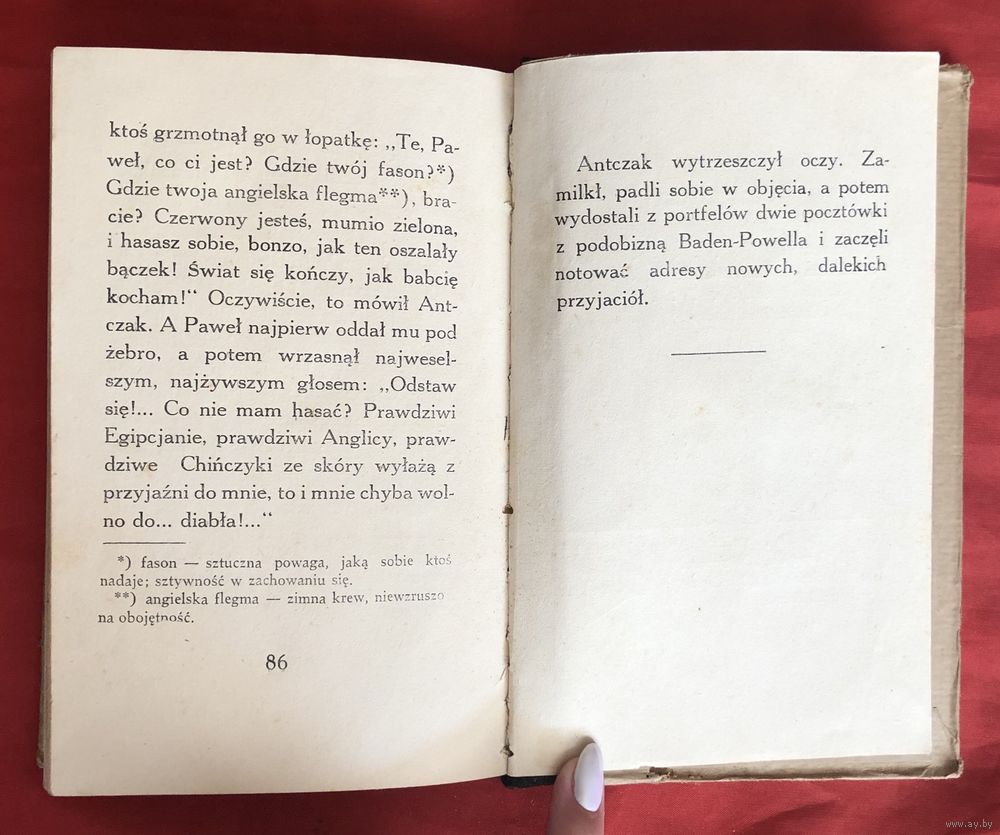 ktoś grzmotnął go w łopatkę: ,,Te, Pa-
weł, co ci jest? Gdzie twój fason?*)
Gdzie twoja angielska flegma**), bra-
cie? Czerwony jesteś, mumio zielona,
i hasasz sobie, bonzo, jak ten oszalały
bączek! Świat się kończy, jak babcię
kocham!“ Oczywiście, to mówił Ant-
czak. A Paweł najpierw oddał mu pod
żebro, a potem wrzasnął najwesel-
szym, najżywszym głosem: ,,Odstaw
się!... Co nie mam hasać? Prawdziwi
Egipcjanie, prawdziwi Anglicy, praw-
dziwe Chińczyki ze skóry wyłażą z
przyjaźni do mnie, to i mnie chyba wol-
no do... diabła!...“
*) fason — sztuczna powaga, jaką sobie ktoś
nadaje; sztywność w zachowaniu się.
**) angielska flegma — zimna krew, niewzruszo
na obojętność.
86
Antczak wytrzeszczył oczy. Za-
milkł, padli sobie w objęcia, a potem
wydostali z portfelów dwie pocztówki
z podobizną Baden-Powella i zaczęli
notować adresy nowych, dalekich
przyjaciół.
www.ay.by